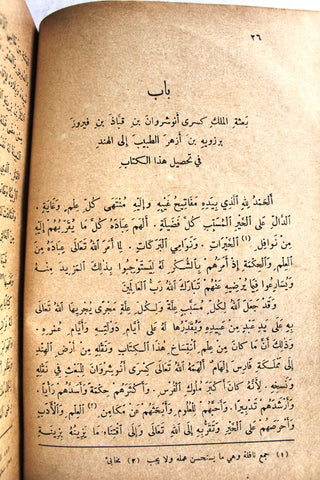 ٢٦
باب
بعثة الملك كسرى أنوشروان بن قباذ بن فيروز
برزويه بن أزهر الطبيب إلى الهند
في تحصيل هذا الكتاب
الحمد لله الذي بيده مفاتيح غيبه وإليه منتهى كل علم وغاية.
الدال على الخير المسبب كل فضيلة. ألهم عباده كل ما يقربهم إليه
من نوافل (١) الخيرات، ونوامي البركات. لما أمر الله تعالى عباده من
العلم والحكمة إذ أمرهم بالشكر له ليستوجبوا بذلك المزيد منه
ويسارعوا فيما يرضيه عنهم تبارك الله رب
وقد جعل الله لكل مسبب علة ولكل علة مجرى يجريها الله تعالى
به على يد عبد من عبيده ويقدرها له على أيام دولته وأيام عمره.
وذلك أن ما كان من علم انتساخ هذا الكتاب ونقله من أرض الهند
إلى مملكة فارس إلهام ألهمه الله تعالى كسرى أنوشروان للبعث في نقله
ونسخه. لأنه كان من أكبر ملوك الفرس، وأكثرهم حكمة وأسدهم رأيا،
وأرشدهم تدبيرا، وأحبهم للعلوم وأبحثهم عن مكامن (٢) العلم والأدب
وأحرصهم على الخير وتقربه إلى الله تعالى وإلى اقتناء ما يزينه بزينة
(١) جمع نافلة وهي ما يستحسن عمله ولا يجب (٢) مخابئ.